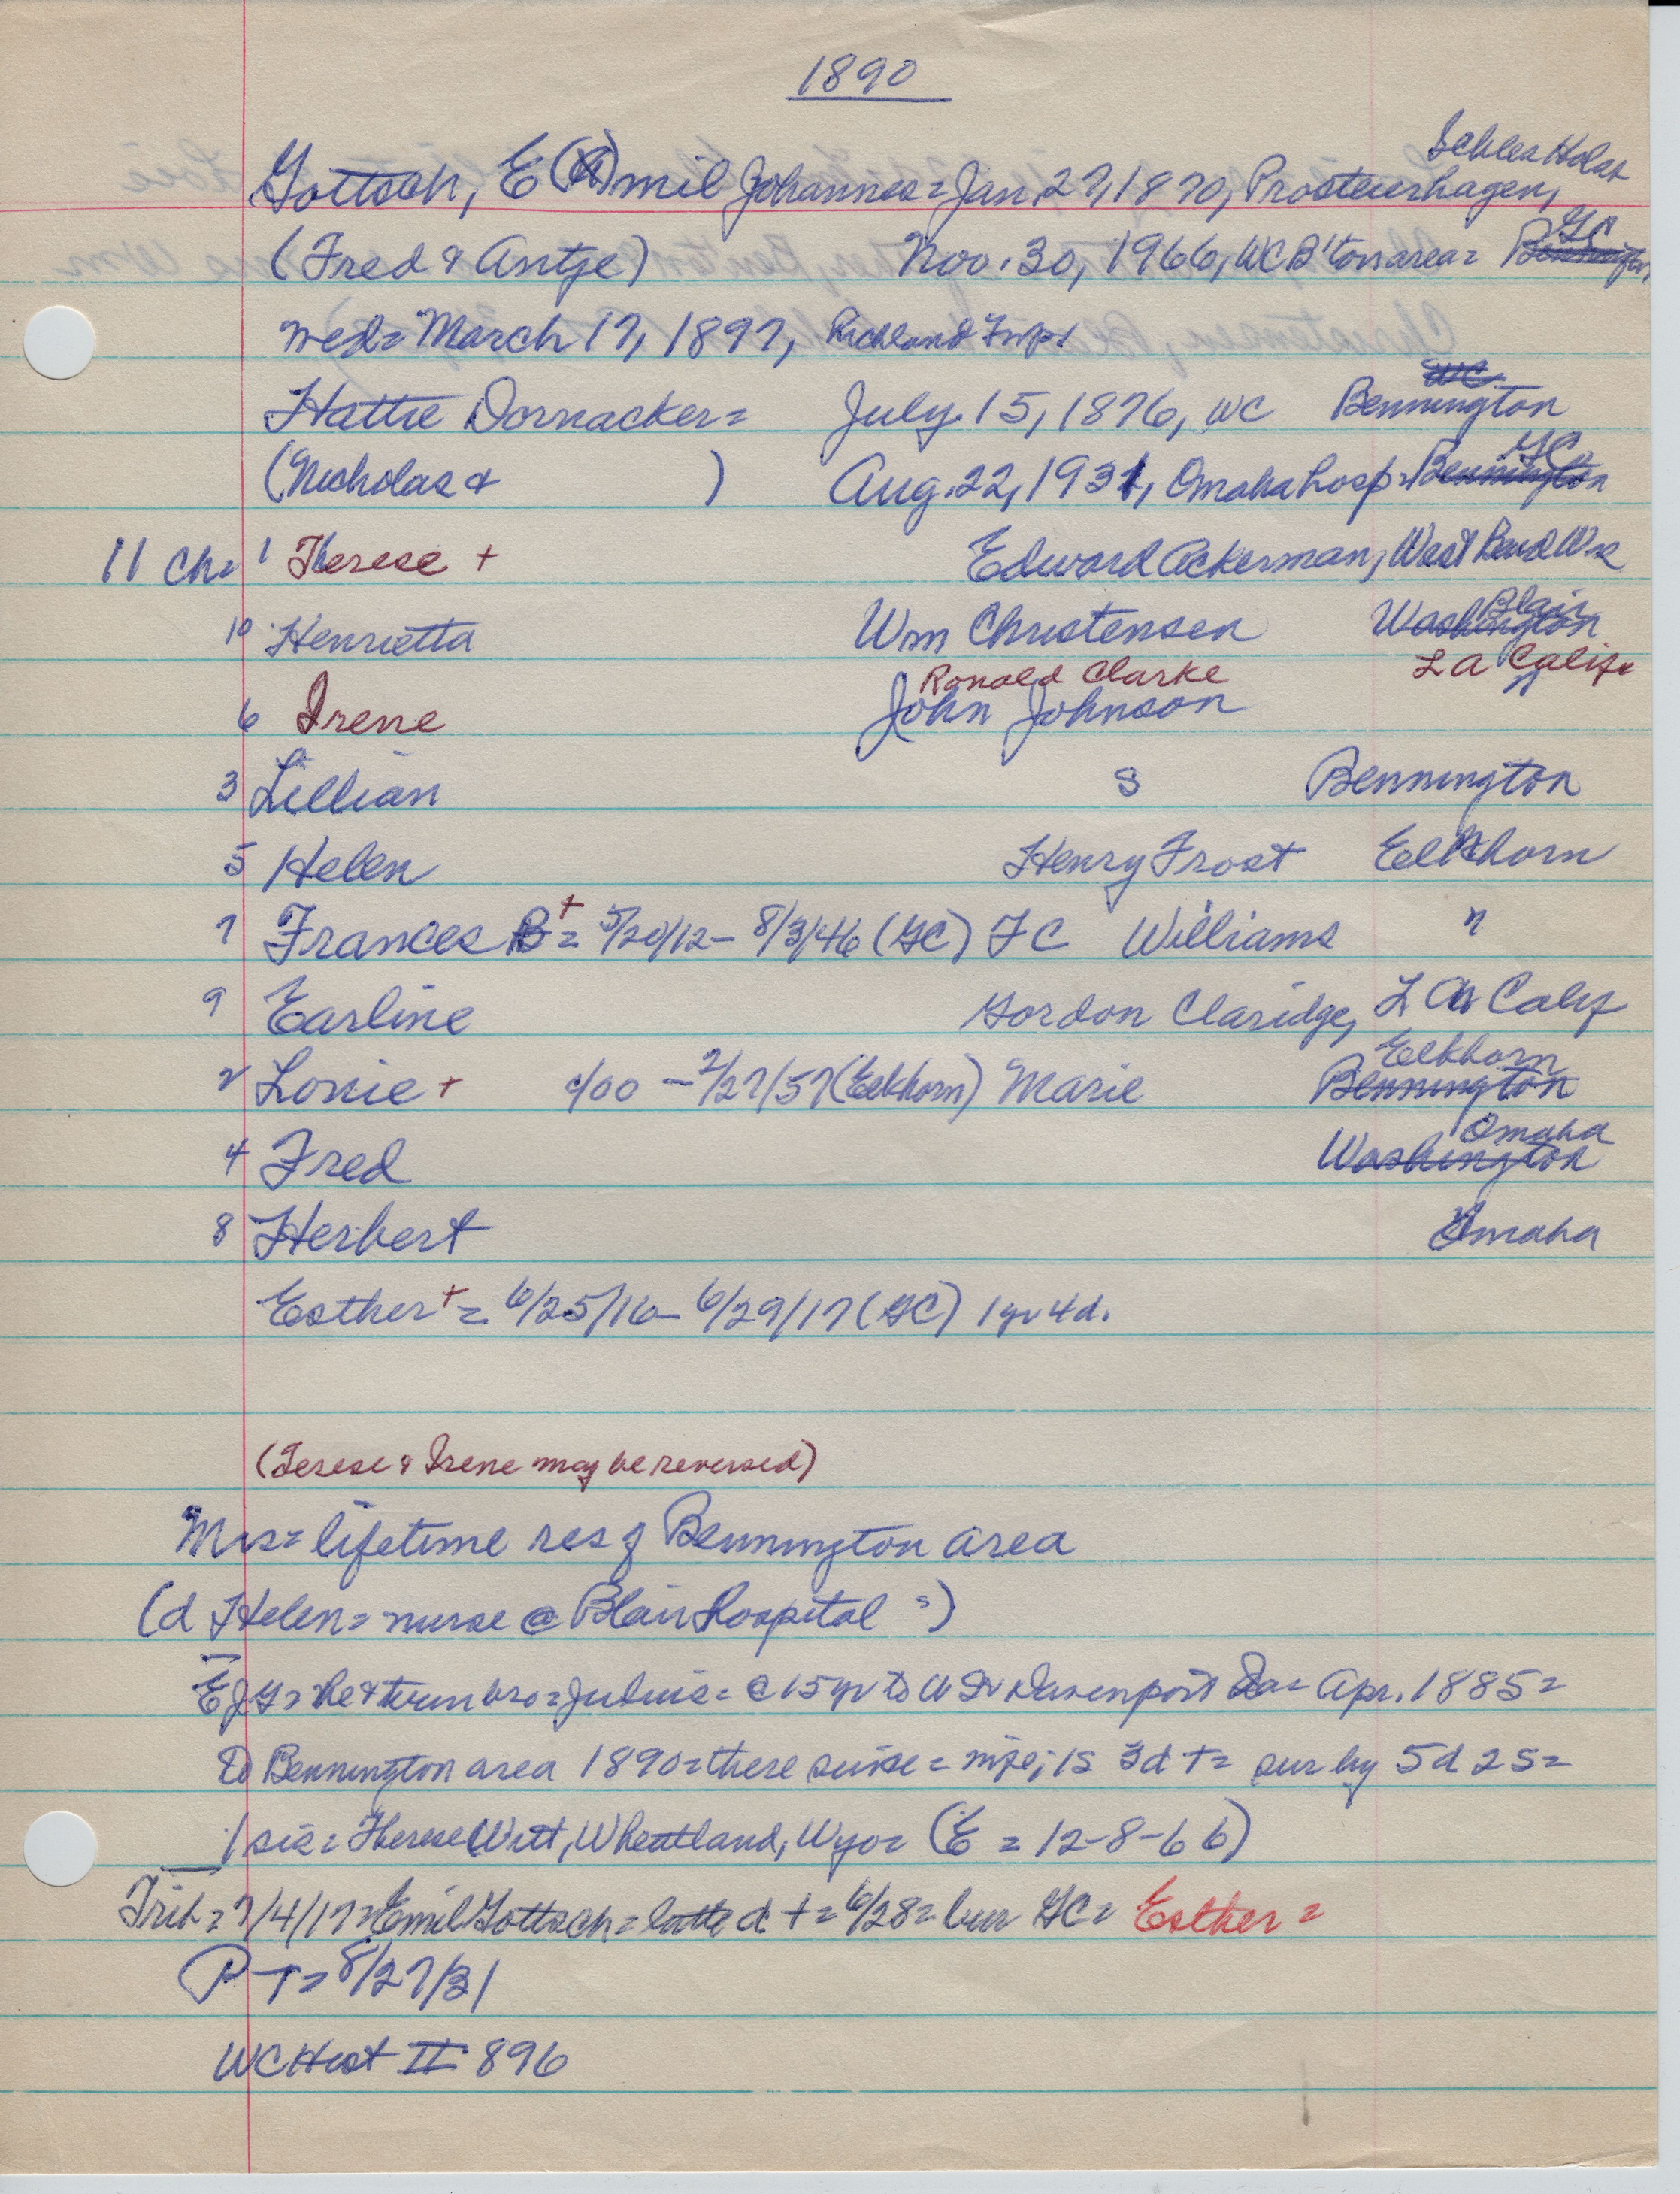 1890
Schles Holst
Gottsch, E( )mil Johannes = Jan. 27, 1870, Prosteuerhagen,
(Fred & Antje) Nov. 30, 1966, WC B'ton area = GC Bennington,
wed = March 17, 1897, Richland Twps
Hattie Dornacker = July 15, 1876, WC WC Bennington
(Nicholas & ) Aug. 22, 1931, Omaha hosp = GC Bennington
11 ch = 1 Therese + Edward Ackerman, West Bend Wis
10 Henrietta Wm Christensen Blair Washington
Ronald Clarke LA Calif
6 Irene John Johnson
3 Lillian S Bennington
5 Helen Henry Frost Eelkhorn
7 Frances B + = 5/20/12 - 8/3/46 (GC) FC Williams "
9 Earline Gordon Claridge, LA Calif
Eelkhorn
2 Louie + c/00 - 2/27/57 (Eelkhorn) Marie Bennington
Omaha
4 Fred Washington
8 Herbert Omaha
Esther + = 6/25/16 - 6/29/17 (GC) 1 yr 4 d.
(Terese & Irene may be reversed)
Mrs = lifetime res of Bennington area
(d Helen = nurse @ Blair hospital s)
EJG = he & twin bro = Julius = c 15 yr to US Davenport Ia = Apr. 1885 =
to Bennington area 1890 = there since = wife; 1s 3d + = sur by 5d 2s =
1 sis = Therese Witt, Wheatland, Wyo = (E = 12-8-66)
Trib = 7/4/17 = Emil Gottsch = latte d + = 6/28 = bur GC = Esther =
P T = 8/27/31
WC Hist II 896